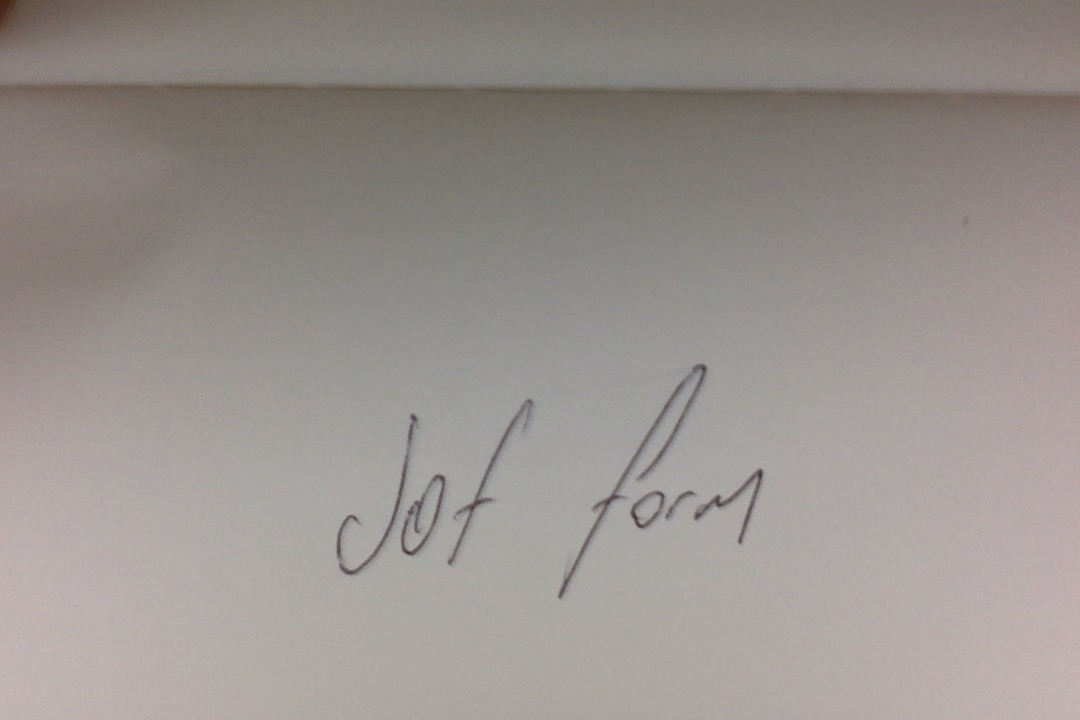 Jot form